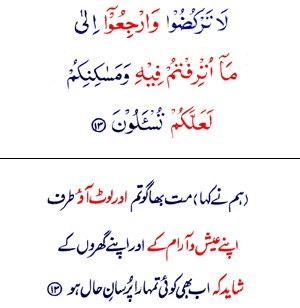 لَا تَرْكُضُوْا وَارْجِعُوْٓا اِلٰى
مَآ اُتْرِفْتُمْ فِيْهِ وَمَسٰكِنِكُمْ
لَعَلَّكُمْ تُسْـَٔلُوْنَ ﴿۱۳﴾
(ہم نے کہا) مت بھاگو تم اور لوٹ آؤ طرف
اپنے عیش و آرام کے اور اپنے گھروں کے
شاید کہ اب بھی کوئی تمہارا پُرسانِ حال ہو ﴿۱۳﴾